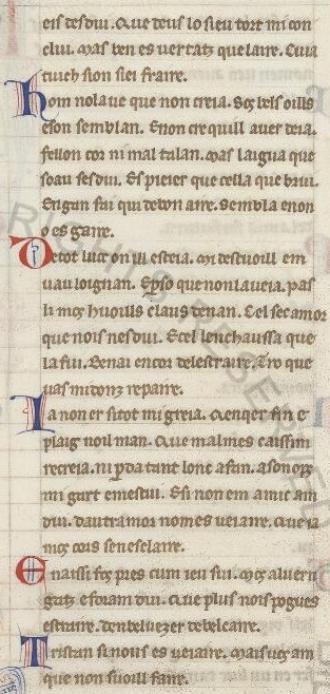 eis cesdui. Que deus lo sieu tort mi con
clui. Mas ben es uertatz que laire. Cuia
tuich sion siei fraire.
Hom nola ue que non creia. Sos bels oills
eson semblan. Enon cre quill auer deia.
fellon cor ni mal talan. Mas laigua que
soau sesdui. Es pieier que cella que brui.
Engan fai qui debon aire. Sembla enon
o es gaire.
De tot luec on ill esteia. Mi destuoill em
uau loignan. Epso que non la ueia. pas
li mos huoills claus denan. Cel sec amor
que nois nesdui. Ecel lenchaussa que
la fui. Benai encor delestraire. Tro que
uas midonz repaire.
Ia non er sitot mi greia. Qenqer fin e
plaig noil man. Que malmes caissim
recreia. ni pda tant lonc afan. Asonops
mi gart emesdui. Esi non em amic am
dui. dautramor nomes ueiaire. Que ia
mos cors senesclaire.
Enaissi fos pres cum ieu sui. Mos aluern
gatz efoiam dui. Que plus nois pogues
estraire. denbeluezer debelcaire.
Tristan si nouis es ueiaire. Mais uos am
que non suoill faire.
RIGHTS RESERVED